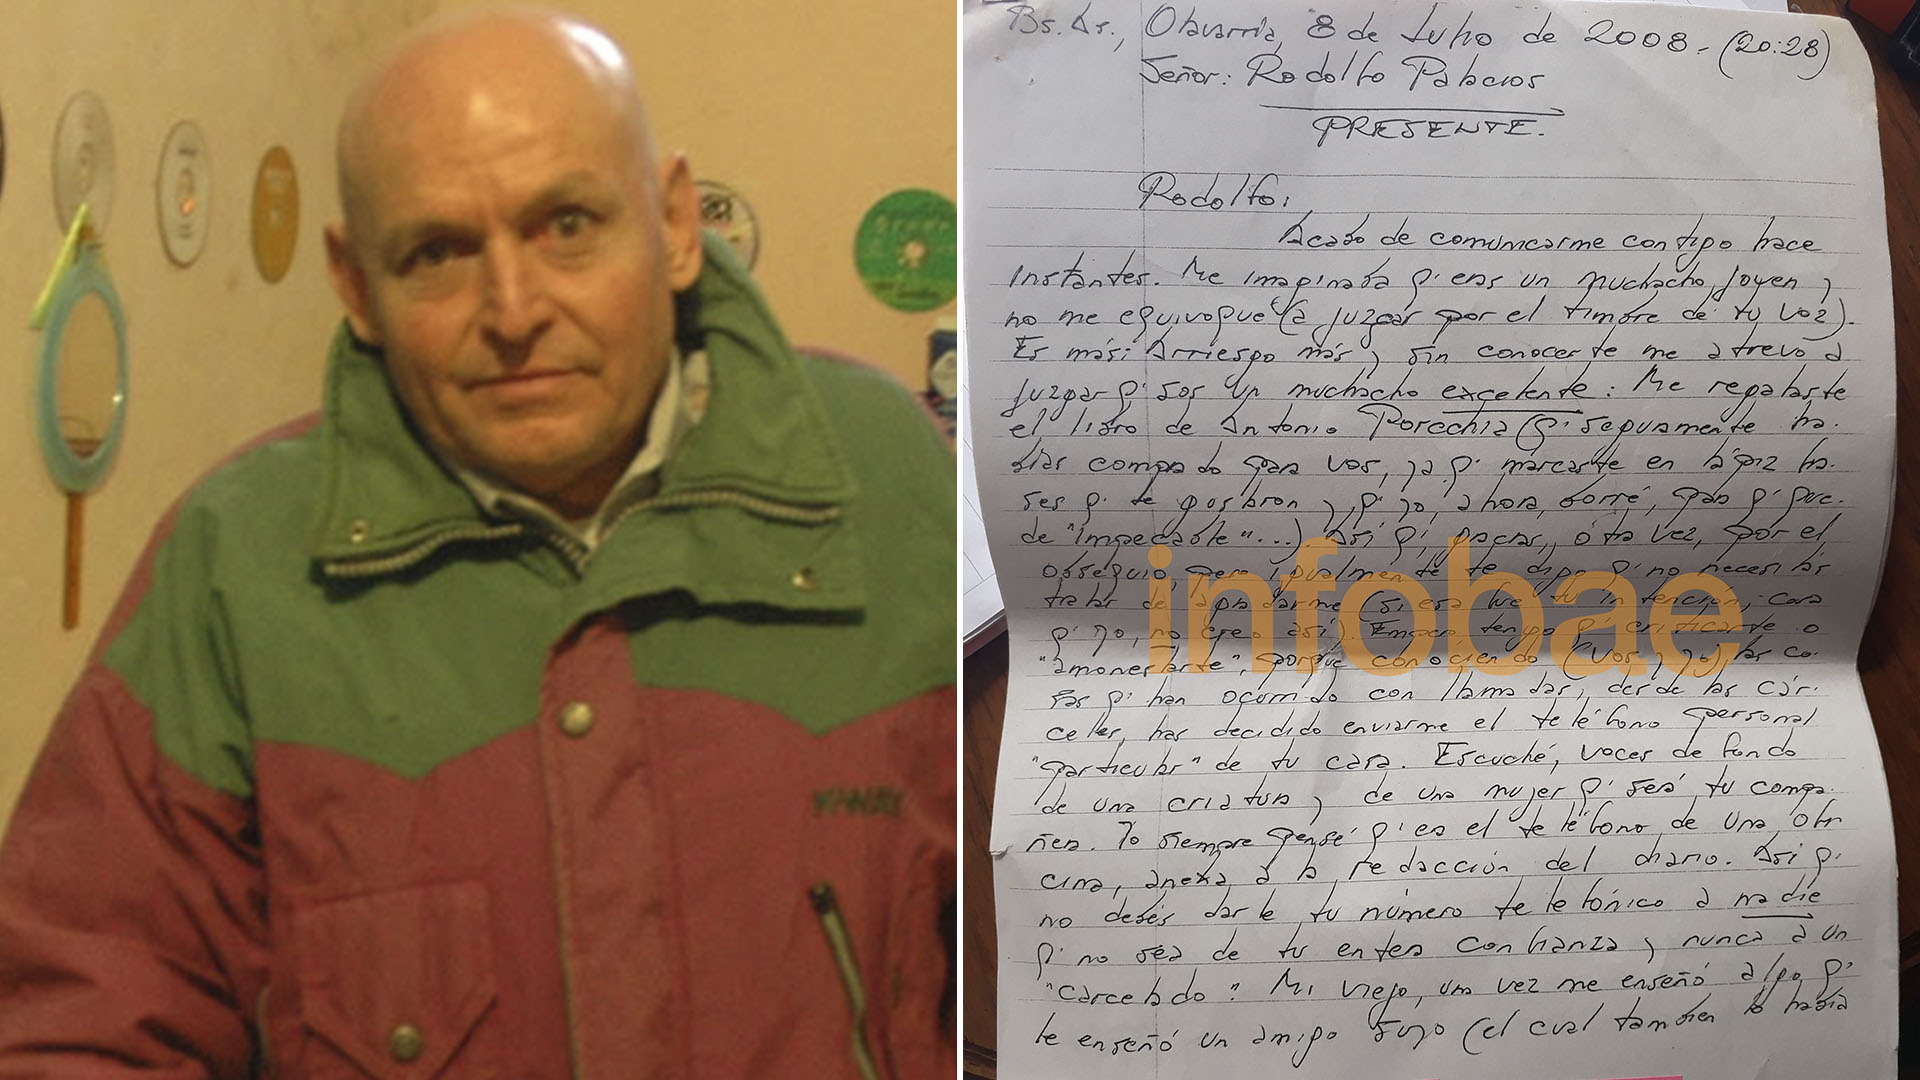 Bs. As., Olavarría, 8 de Julio de 2008.- (20:28)
Señor: Rodolfo Palacios
PRESENTE.
Rodolfo:
Acabo de comunicarme contigo hace
instantes. Me imaginaba q' eras un muchacho, joven y
no me equivoqué (a juzgar por el timbre de tu voz).
Es más: Arriesgo más y sin conocerte me atrevo a
juzgar q' sos un muchacho excelente: Me regalaste
el libro de Antonio Porchia (q' seguramente ha-
bías comprado para vos, ya q' marcaste en lápiz fra-
ses q' te gustaron y, q' yo, ahora, borré, para q' que-
de "impecable"...). Así q', gracias, otra vez, por el
obsequio, pero igualmente te digo q' no necesitás
tratar de agradarme (si esa fue tu intención, cosa
q' yo, no creo así). Empero tengo q' criticarte o
"amonestarte", porque conociendo (vos y yo) las co-
sas q' han ocurrido con llamadas, desde las cár-
celes, has decidido enviarme el teléfono personal
"particular" de tu casa. Escuché, voces de fondo
de una criatura y de una mujer q' será tu compa-
ñera. Yo siempre pensé q' era el teléfono de una ofi-
cina, anexa a la redacción del diario. Así q'
no debés darle tu número telefónico a nadie
q' no sea de tu entera confianza y nunca a un
"carcelado". Mi viejo, una vez me enseñó algo q'
le enseñó un amigo suyo (el cual también lo había
infobae